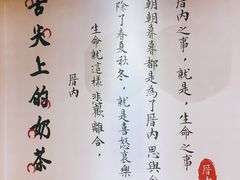 厝内之事，就是，生命之事
朝朝暮暮都是為了厝内思與
除了春夏秋冬，就是喜怒哀樂
生命就這樣悲歡離合，
厝内
舌尖上的奶茶
厝内